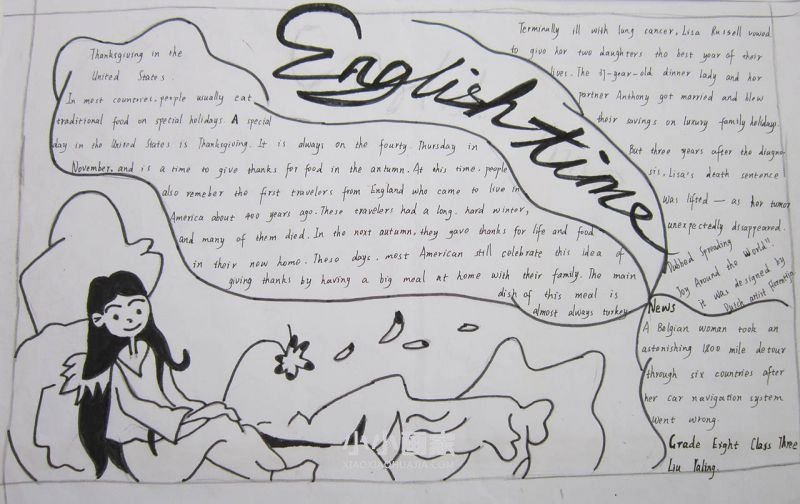 English time
Thanksgiving in the
United States.
In most countries, people usually eat
traditional food on special holidays. A special
day in the United States is Thanksgiving. It is always on the fourty Thursday in
November, and is a time to give thanks for food in the antumn. At this time, people
also remeber the first travelers from England who came to live in
America about 400 years ago. These travelers had a long, hard winter,
and many of them died. In the next autumn, they gave thanks for life and food
in their new home. These days, most American still celebrate this idea of
giving thanks by having a big meal at home with their family. The main
dish of this meal is
almost always turkey.
Terminally ill with lung cancer, Lisa Russell vowed
to give her two daughters the best year of their
lives. The 37-year-old dinner lady and her
partner Anthony got married and blew
their savings on luxury family holidays.
But three years after the diagno-
sis, Lisa's death sentence
was lifted — as her tumor
unexpectedly disappeared.
Dubbed Spreading
Joy Around the World".
it was designed by
Dutch artist
News
A Belgian woman took an
astonishing 1800 mile detour
through six countries after
her car navigation system
went wrong.
Grade Eight Class Three
Liu Yaling.
小小画家
XIAOXIAOHUAJIA.COM